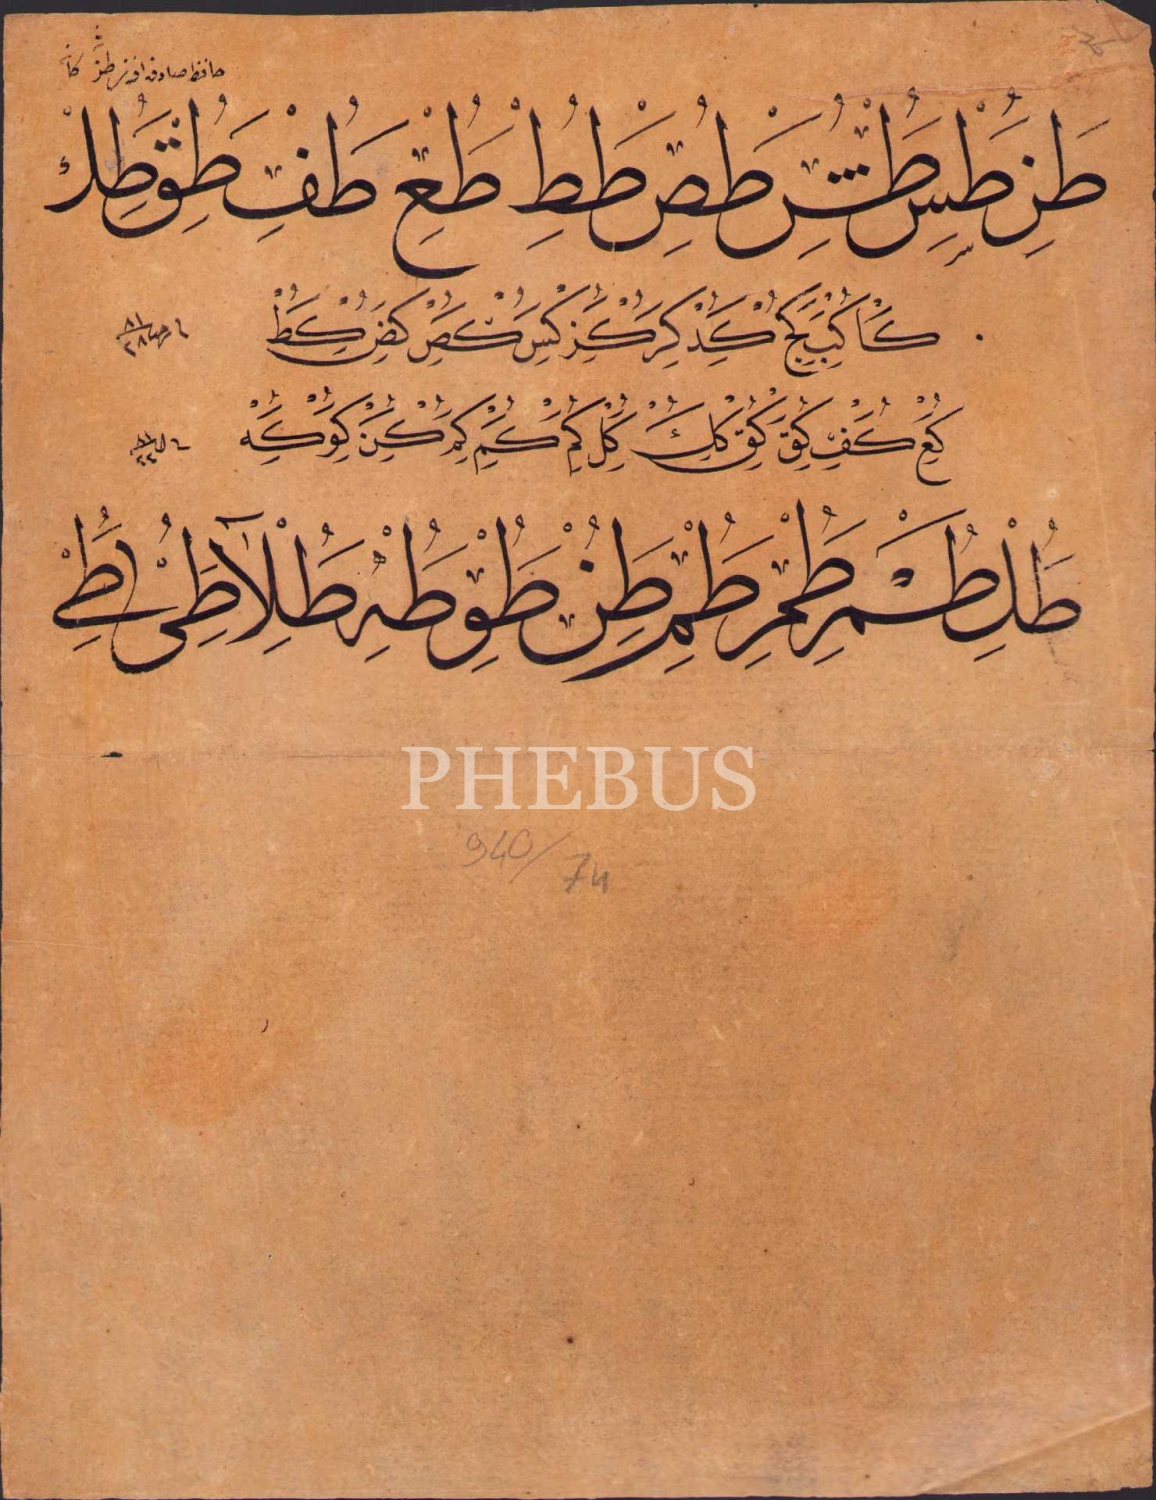 حافظ صادق افندی
طز طس طش طص طط طع طف طق طك
كا كب كج كد كر كز كس كص كض كط
كع كف كق كق كك كل كم كم كم كن كو كه
طل طم طم طم طن طو طه طلا طى طے
PHEBUS
940/74